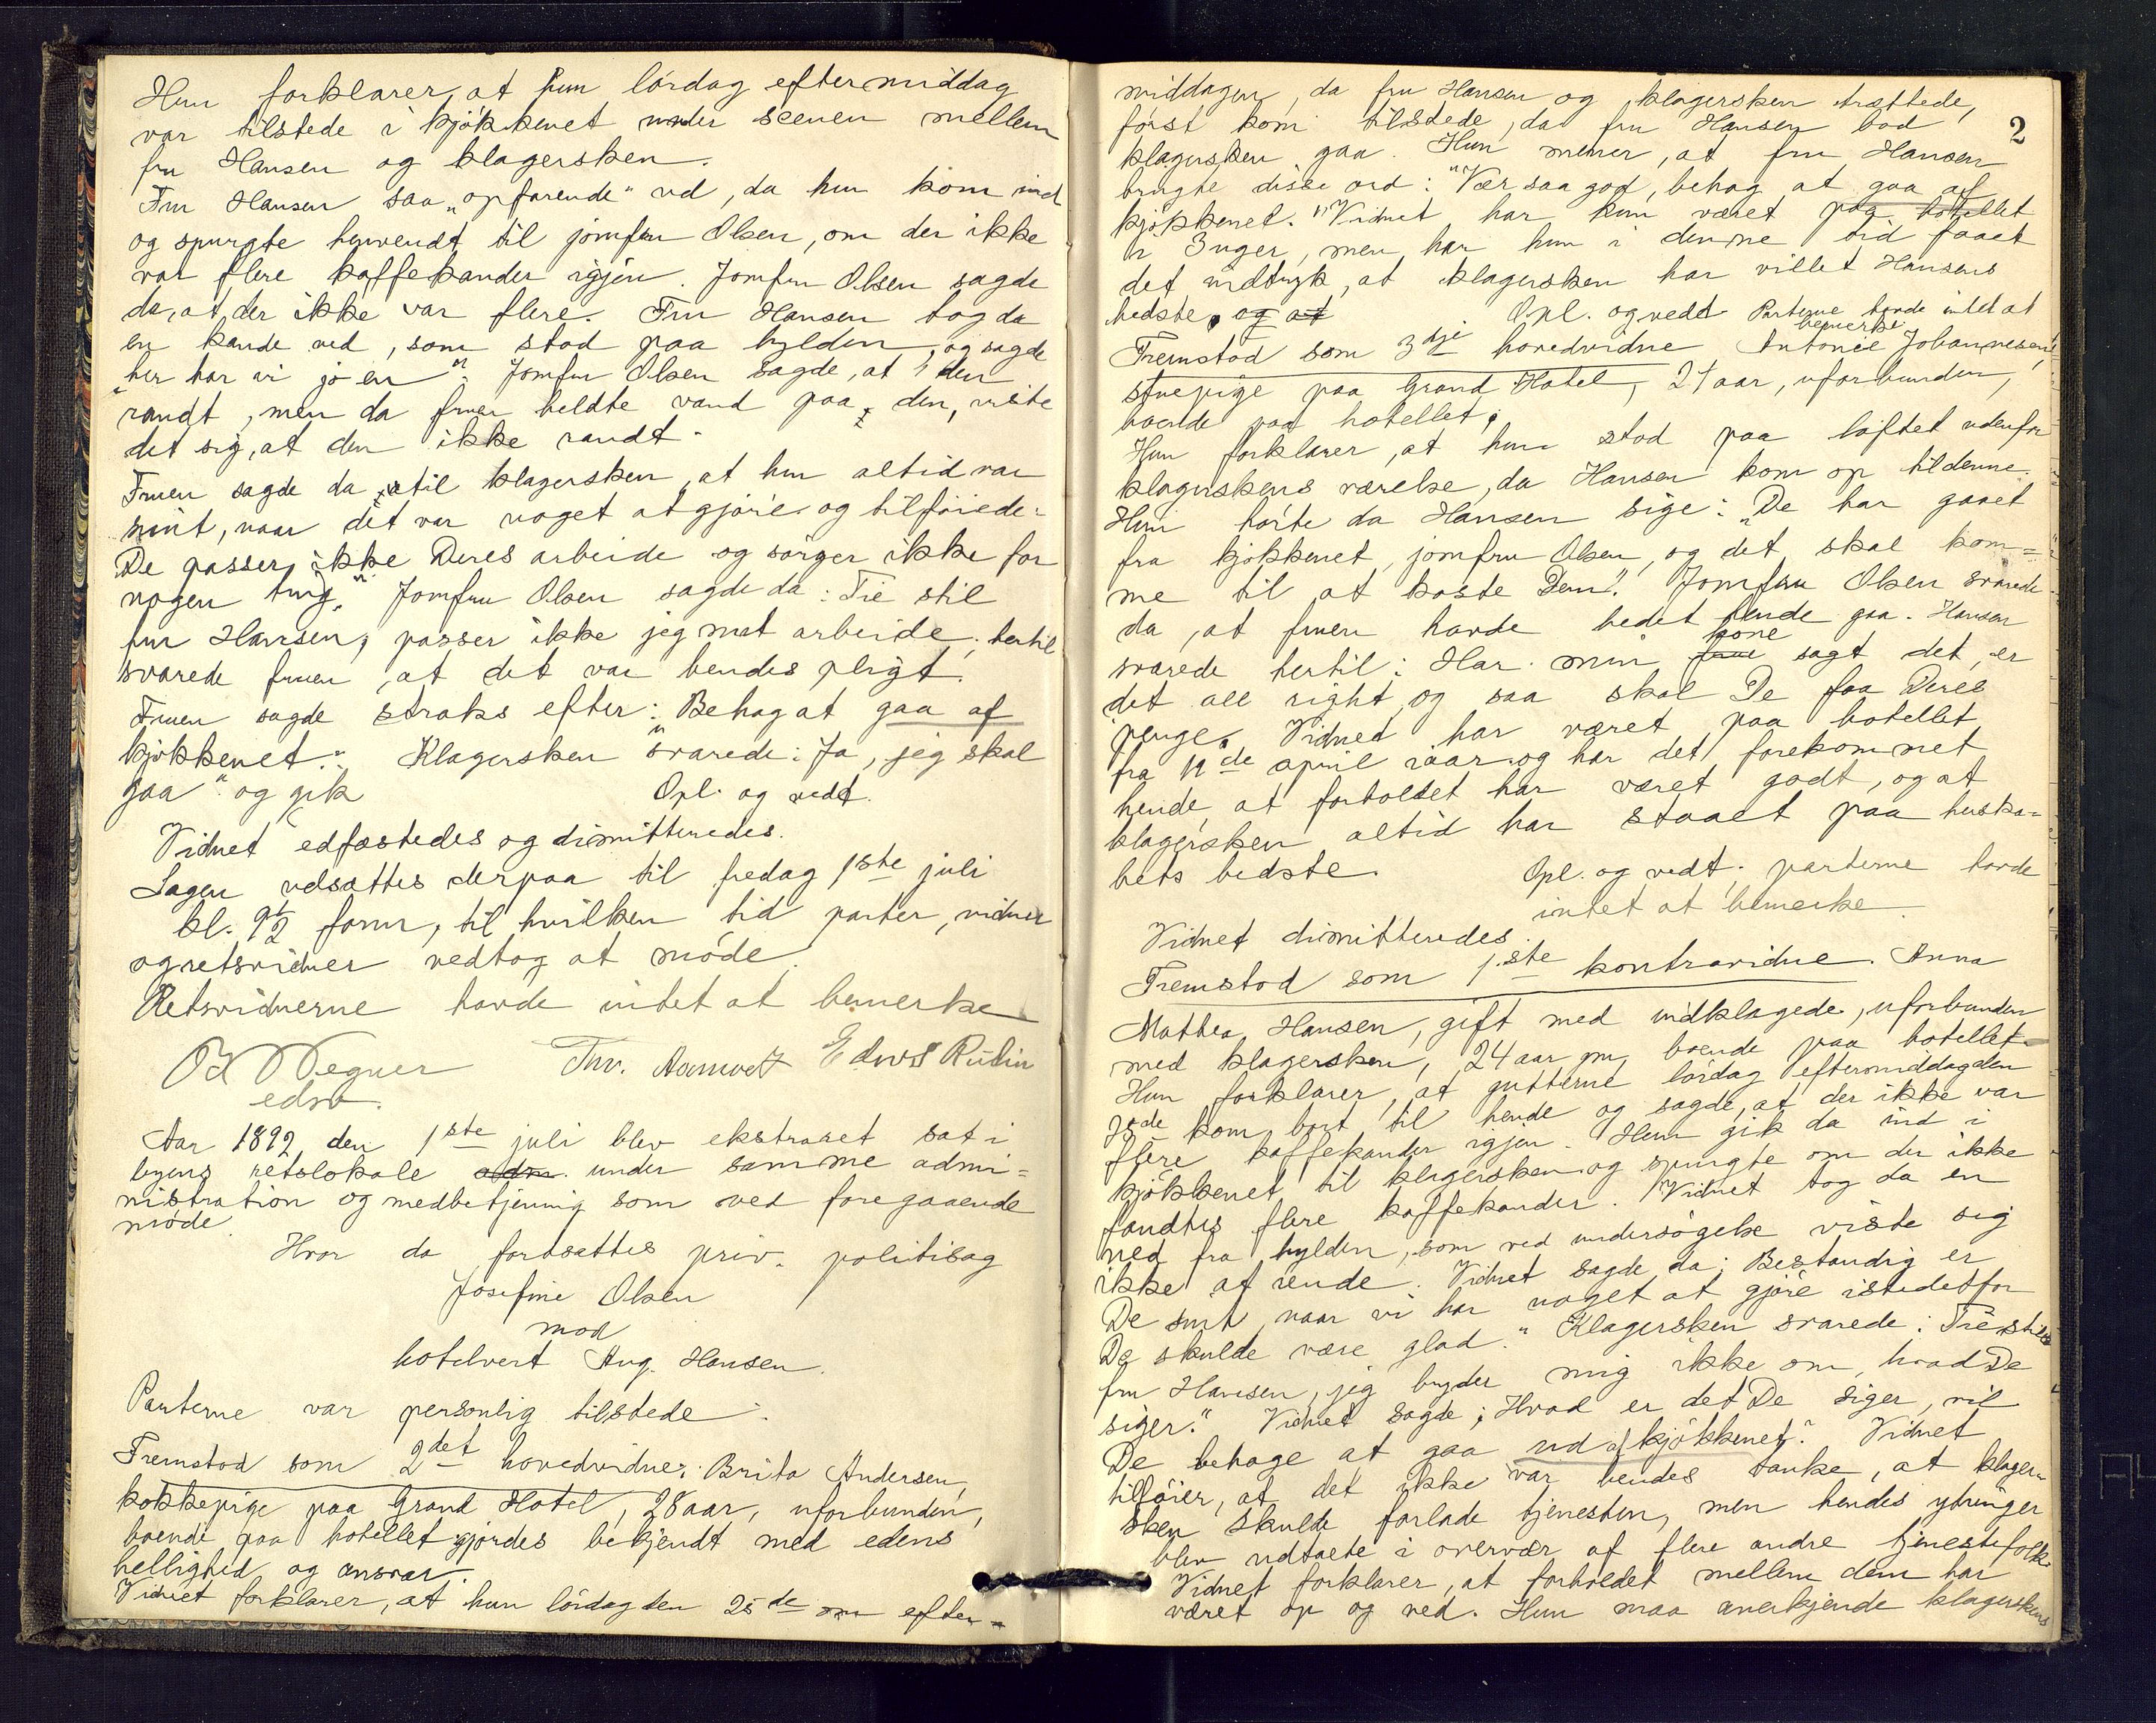 Hun forklarer, at hun lørdag eftermiddag
var tilstede i kjøkkenet under scenen mellem
fru Hansen og klagersken.
Fru Hansen saa „opfarende" ud, da hun kom ind
og spurgte henvendt til jomfru Olsen, om der ikke
var flere kaffekander igjen. Jomfru Olsen sagde
da, at der ikke var flere. Fru Hansen tog da
en kande ned, som stod paa hylden, og sagde
„her har vi jo en". Jomfru Olsen sagde, at den
randt, men da fruen heldte vand paa den, viste
det sig, at den ikke randt.
Fruen sagde da til klagersken, at hun altid var
sint, naar det var noget at gjøre og tilføiede:
De passer ikke Deres arbeide og sørger ikke for
nogen ting." Jomfru Olsen sagde da: Tie stil
fru Hansen, passer ikke jeg mit arbeide; hertil
svarede fruen, at det var hendes pligt.
Fruen sagde straks efter: Behag at gaa af
kjøkkenet." Klagersken svarede: Ja, jeg skal
gaa" og gik Opl. og vedt.
Vidnet edfæstedes og dimitteredes.
Sagen udsættes derpaa til fredag 1ste juli
kl. 9½ form, til hvilken tid parter, vidner
og retsvidner vedtog at møde.
Retsvidnerne havde intet at bemerke
O Wegner Thv. Aamodt Edw Rubin
edsv.
Aar 1892 den 1ste juli blev ekstraret sat i
byens retslokale under samme admi=
nistration og medbetjening som ved foregaaende
møde.
Hvor da fortsattes priv. politisag
Josefine Olsen
mod
hotelvert Aug. Hansen.
Parterne var personlig tilstede.
Fremstod som 2det hovedvidne: Brita Andersen,
kokkepige paa Grand Hotel, 28 aar, uforbunden,
boende paa hotellet gjordes bekjendt med edens
hellighed og ansvar.
Vidnet forklarer, at hun lørdag den 25de om efter=
2
middagen, da fru Hansen og klagersken trættede,
først kom tilstede, da fru Hansen bad
klagersken gaa. Hun mener, at fru Hansen
brugte disse ord: "Vær saa god, behag at gaa af
kjøkkenet." Vidnet har kun været paa hotellet
i 3 uger, men har hun i denne tid faaet
det indtryk, at klagersken har villet Hansens
bedste, og at Opl. og vedt. Parterne havde intet at
bemerke
Fremstod som 3dje hovedvidne Antonie Johannesen,
stuepige paa Grand Hotel, 21 aar, uforbunden,
boende paa hotellet;
Hun forklarer, at hun stod paa loftet udenfor
klagerskens værelse, da Hansen kom op til denne.
Hun hørte da Hansen sige: „De har gaaet
fra kjøkkenet, jomfru Olsen, og det skal kom=
me til at koste Dem". Jomfru Olsen svarede
da, at fruen havde bedet hende gaa. Hansen
svarede hertil: Har min frue kone sagt det, er
det all right, og saa skal De faa Deres
penge. Vidnet har været paa hotellet
fra 19de april iaar og har det forekommet
hende, at forholdet har været godt, og at
klagersken altid har staaet paa huska=
bets bedste. Opl. og vedt; parterne havde
intet at bemerke.
Vidnet dimitteredes.
Fremstod som 1ste kontravidne. Anna
Mathea Hansen, gift med indklagede, uforbunden
med klagersken, 24 aar gm, boende paa hotellet.
Hun forklarer, at gutterne lørdag eftermiddag den
kom bort til hende og sagde, at der ikke var
flere kaffekander igjen. Hun gik da ind i
kjøkkenet til klagersken og spurgte om der ikke
fandtes flere kaffekander. Vidnet tog da en
ned fra hylden, som ved undersøgelse viste sig
ikke at rende. Vidnet sagde da: Bestandig er
De sint naar vi har noget at gjøre istedetfor
De skulde være glad." Klagersken svarede: Tie stille
fru Hansen, jeg bryder mig ikke om, hvad De
siger." Vidnet sagde: Hvad er det De siger, vil
De behage at gaa ud af kjøkkenet." Vidnet
tilføier, at det ikke var hendes tanke, at klager=
sken skulde forlade tjenesten, men hendes ytringer
blev udtalte i overvær af flere andre tjenestefolk.
Vidnet forklarer, at forholdet mellem dem har
været op og ned. Hun maa anerkjende klagerskens